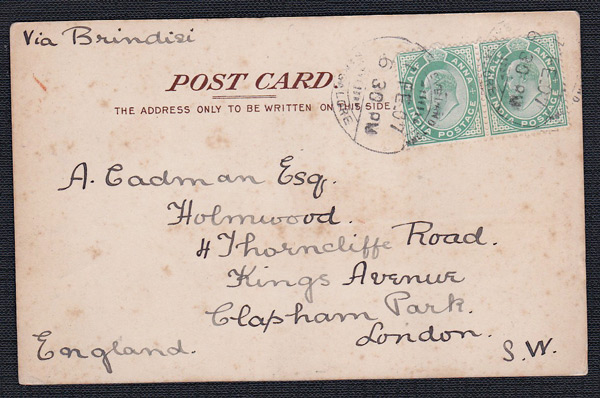 Via Brindisi
POST CARD
THE ADDRESS ONLY TO BE WRITTEN ON THIS SIDE.
6 30 PM
HALF ANNA
INDIA POSTAGE
HALF ANNA
INDIA POSTAGE
A. Cadman Esq.
Holmwood.
4 Thorncliffe Road.
Kings Avenue
Clapham Park.
London.
England.
S.W.